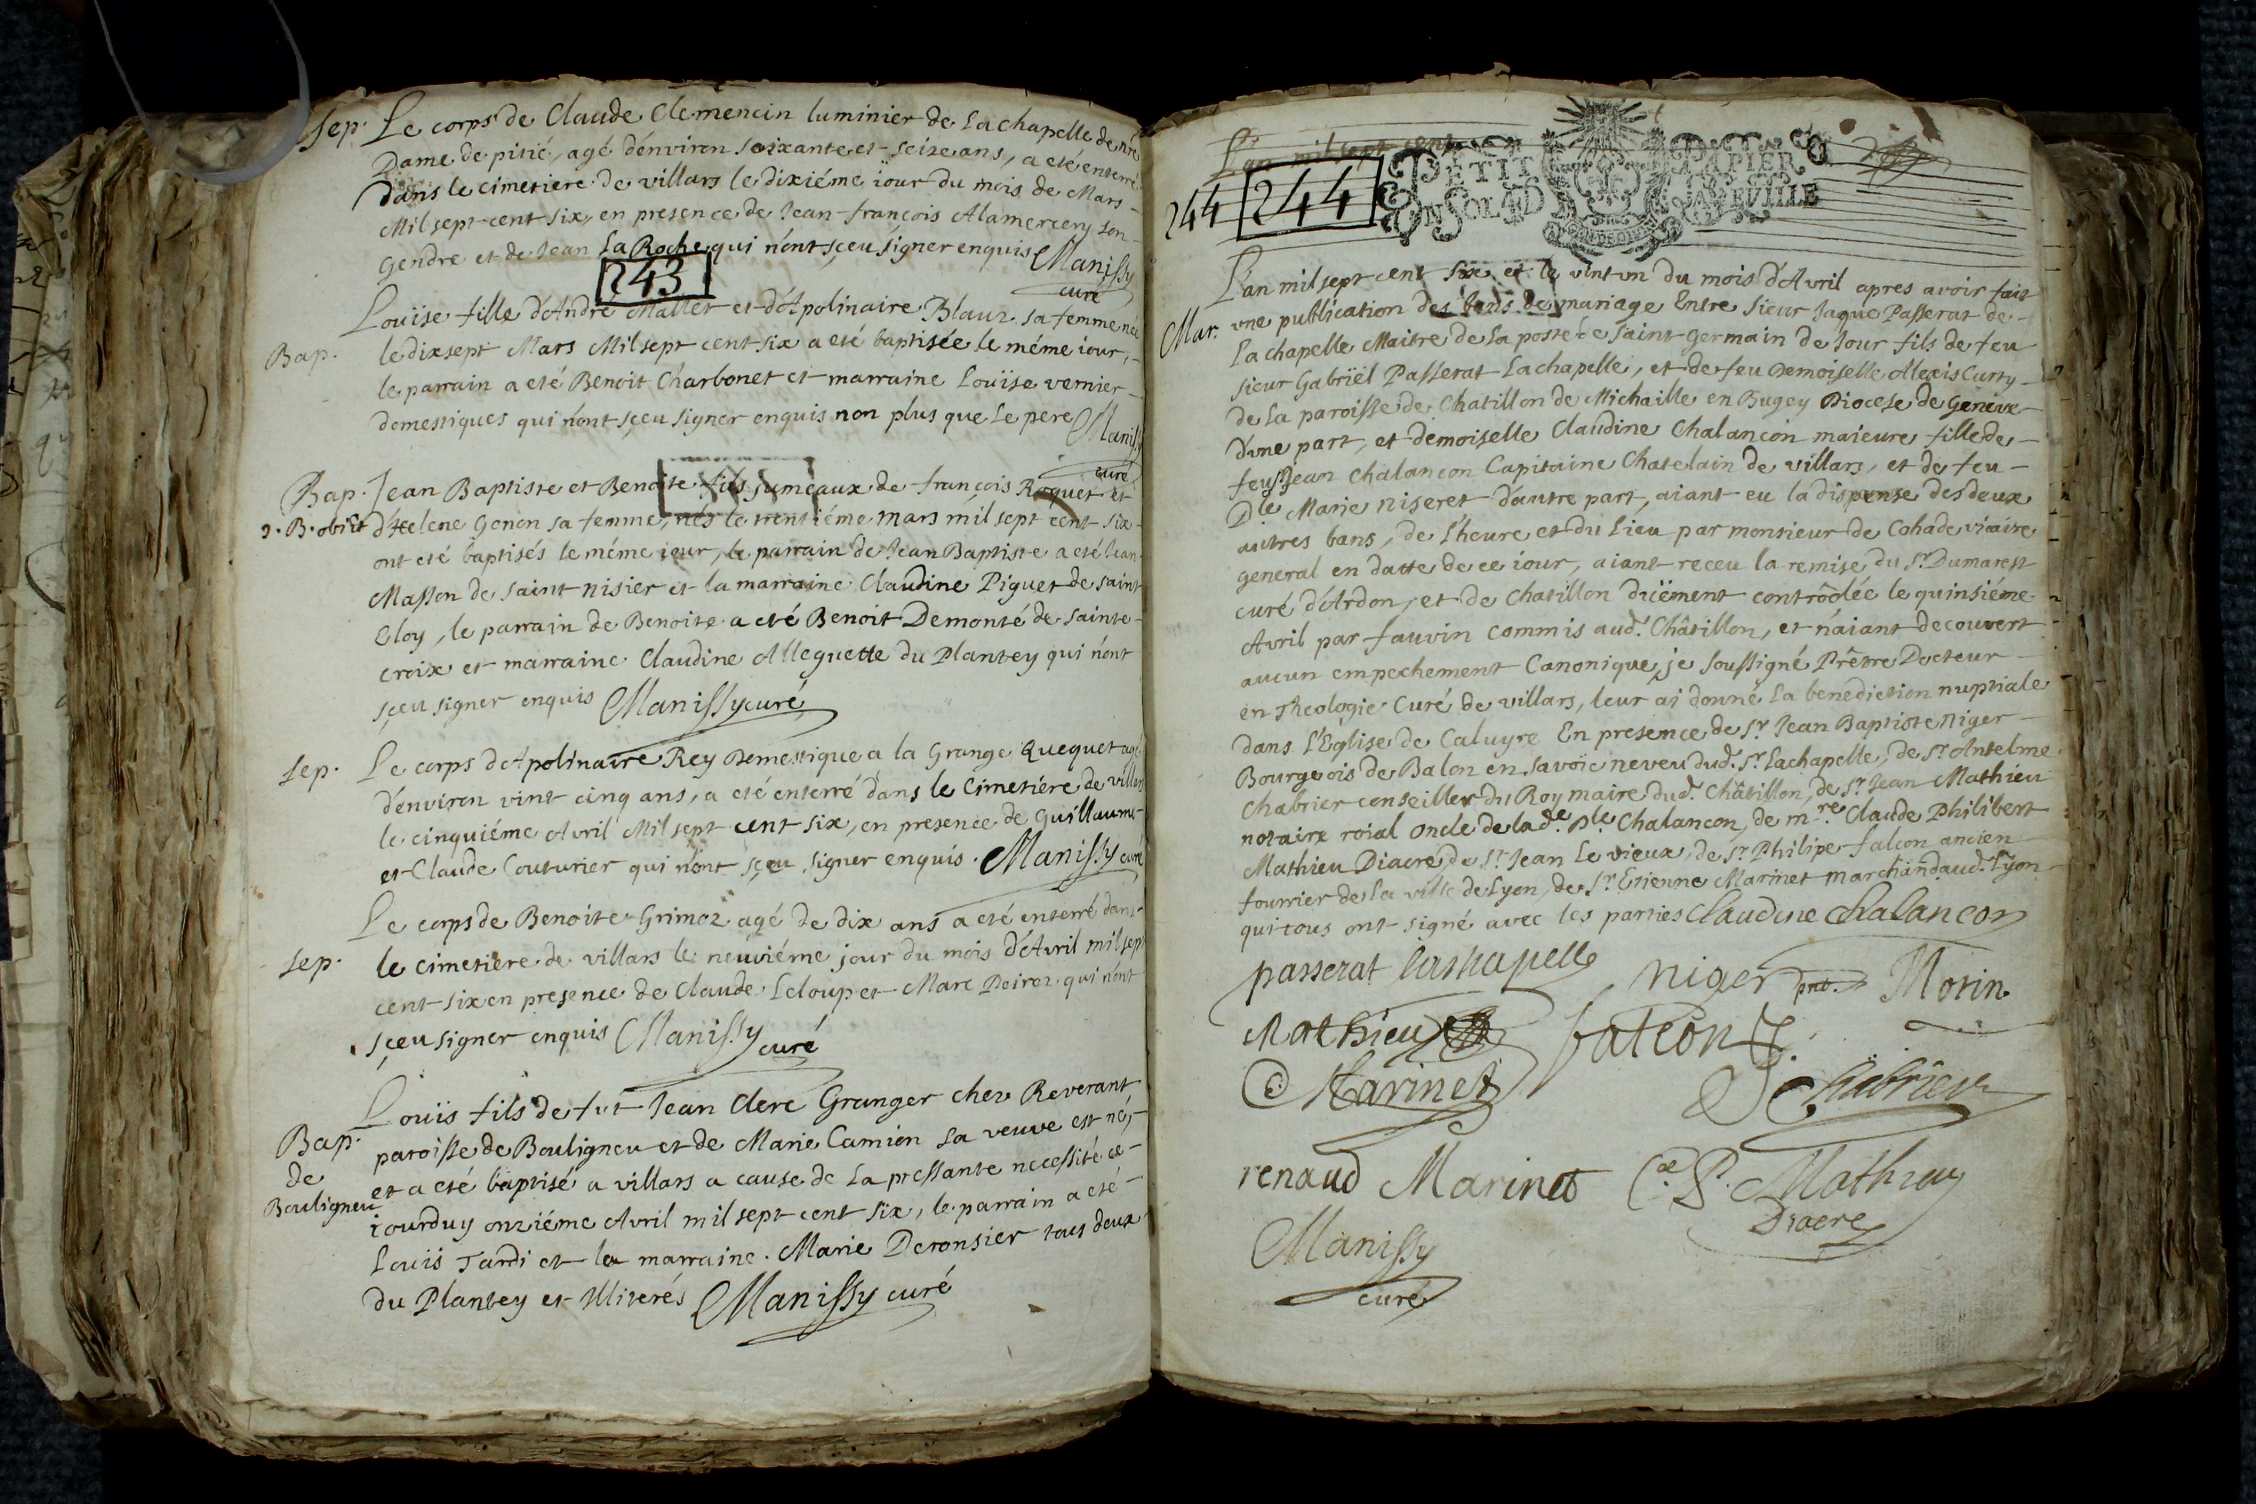 Sep. Le corps de Claude Clemencin luminier de la chapelle de nre
Dame de pitié, agé d'environ soixante et seize ans, a eté enterré
dans le cimetiere de villars le dixiéme iour du mois de Mars
Mil sept cent six, en presence de Jean françois Alamercery son
Gendre et de Jean La Roche qui n'ont sçeu signer enquis Manissy
curé
243
Louïse fille d'André Mallet et d'Apolinaire Blanz sa femme née
Bap. le dixsept Mars Mil sept cent six a eté baptisée le méme iour,
le parrain a eté Benoit Charbonet et marraine Louïse vernier
domestiques qui n'ont sçeu signer enquis non plus que le pere Manissy
curé
Bap. Jean Baptiste et Benoite fils jumeaux de françois Roquet et
J. B. obiit d'Helene Genon sa femme, nés le trentiéme mars mil sept cent six
ont eté baptisés le méme iour, le parrain de Jean Baptiste a eté Jean
Masson de saint nisier et la marraine Claudine Piguet de saint
Eloy, le parrain de Benoite a eté Benoit Demonté de sainte
croix et marraine Claudine Alleguette du Plantey qui n'ont
sçeu signer enquis Manissy curé
Sep. Le corps d'Apolinaire Rey Domestique a la Grange Quequet agé
d'environ vint cinq ans, a eté enterré dans le Cimetiére de villars
le cinquiéme Avril Mil sept cent six, en presence de Guillaume
et Claude Couturier qui n'ont sçeu signer enquis. Manissy curé
Le corps de Benoite Grimoz agé de dix ans a eté enterré dans
Sep. le cimetiere de villars le neuviéme jour du mois d'Avril mil sept
cent six en presence de Claude Leloup et Marc Poiroz qui n'ont
sçeu signer enquis Manissy
curé
Louïs fils de fut Jean Clerc Granger chez Reverant
Bap. paroisse de Bouligneu et de Marie Camion sa veuve est né,
de et a eté baptisé a villars a cause de la pressante necessité ce
Bouligneu iourduy onziéme Avril mil sept cent six, le parrain a eté
Louis Tardi et la marraine Marie Deronsier tous deux
du Plantey et illiterés Manissy curé
L'an mil sept cent
244 244 PETIT PAPIER
UN SOL 4 D LA FEUILLE
L'an mil sept cent six et le vint un du mois d'Avril apres avoir fait
Mar. une publication des bans de mariage Entre sieur Jaque Passerat de
Lachapelle Maitre de la poste de saint germain de Jour fils de feu
sieur Gabriël Passerat Lachapelle, et de feu Demoiselle Alexis Curty
de la paroisse de Chatillon de Michaille en Bugey Diocese de Geneve
d'une part, et demoiselle Claudine Chalancon maieure fille de
feu Sr Jean Chalancon Capitaine Chatelain de villars, et de feu
Dle Marie niseret d'autre part, aiant eu la dispense des deux
autres bans, de l'heure et du lieu par monsieur de Cohade vicaire
general en datte de ce iour, aiant receu la remise du Sr Dumarest
curé d'Ardon, et de Chatillon duëment contrôolée le quinsiéme
Avril par fauvin commis aud. Châtillon, et n'aiant decouvert
aucun empechement Canonique, je soussigné Prêtre Docteur
en Theologie Curé de villars, leur ai donné la benediction nuptiale
dans l'Eglise de Caluyre En presence de Sr Jean Baptiste niger
Bourgeois de Balon en Savoie neveu dud. Sr Lachapelle, de Sr Antelme
Chabrier conseiller du Roy maire dud. Châtillon, de Sr Jean Mathieu
notaire roial oncle de lade Dle Chalancon, de mre Claude Philibert
Mathieu Diacre, de Sr Jean Le vieux, de Sr Philipe falcon ancien
fourrier de la ville de Lyon, de Sr Etienne Marinet marchand aud. Lyon
qui tous ont signé avec les parties Claudine Chalancon
passerat lachapelle Niger pnt. Morin
Mathieu falcon
E Marinet Chabrier
renaud Marinet Cde P. Mathieu
Diacre
Manissy
curé